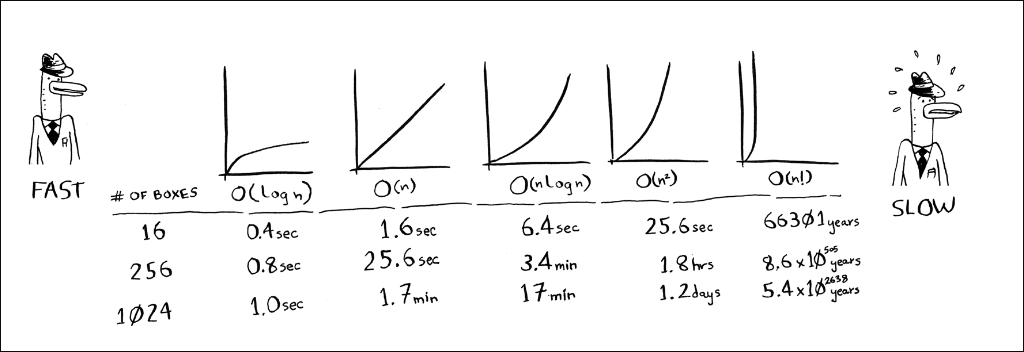 FAST
# OF BOXES O(log n) O(n) O(n log n) O(n²) O(n!)
16 0.4sec 1.6sec 6.4sec 25.6sec 66301years
256 0.8sec 25.6sec 3.4min 1.8hrs 8.6x10⁵⁰⁵years
1024 1.0sec 1.7min 17min 1.2days 5.4x10²⁶³⁸years
SLOW
R
A